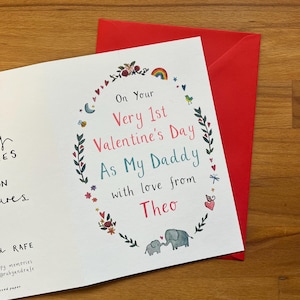 On Your
Very 1st
Valentine's Day
As My Daddy
with love from
Theo
RAFE